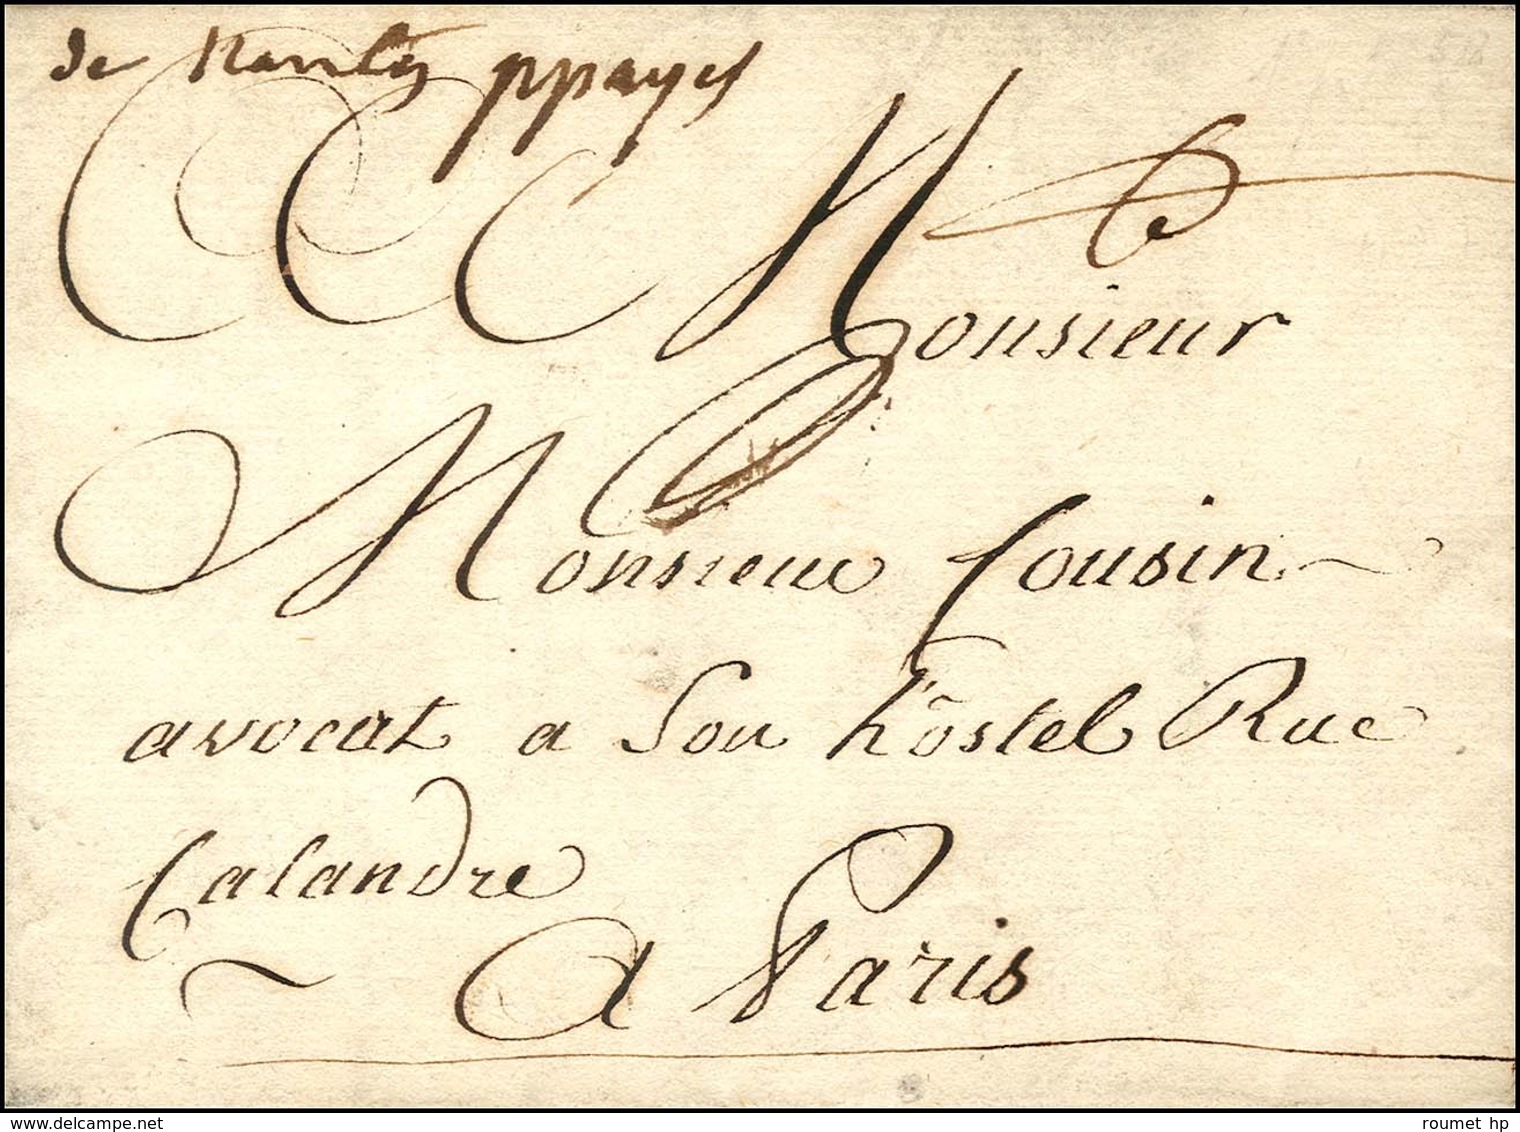 de Nantes ppayes
Monsieur
Monsieur Cousin
avocat a Son hôstel Rue
Calandre
A Paris
delcampe.net
roumet hp